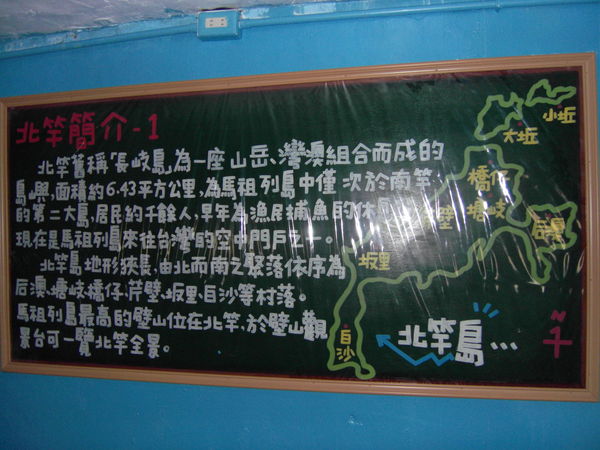 北竿簡介-1
北竿舊稱「長岐島」,為一座山岳、灣澳組合而成的
島嶼,面積約6.43平方公里,為馬祖列島中僅次於南竿
的第二大島,居民約千餘人,早年為漁民捕魚的休
現在是馬祖列島來往台灣的空中門戶之一。
北竿島地形狹長,由北而南之聚落依序為
后澳、塘岐橋仔、芹壁、坂里、白沙等村落。
馬祖列島最高的壁山位在北竿,於壁山觀
景台可一覽北竿全景。
小坵
大坵
橋仔
塘岐
壁
坂里
白沙
北竿島...